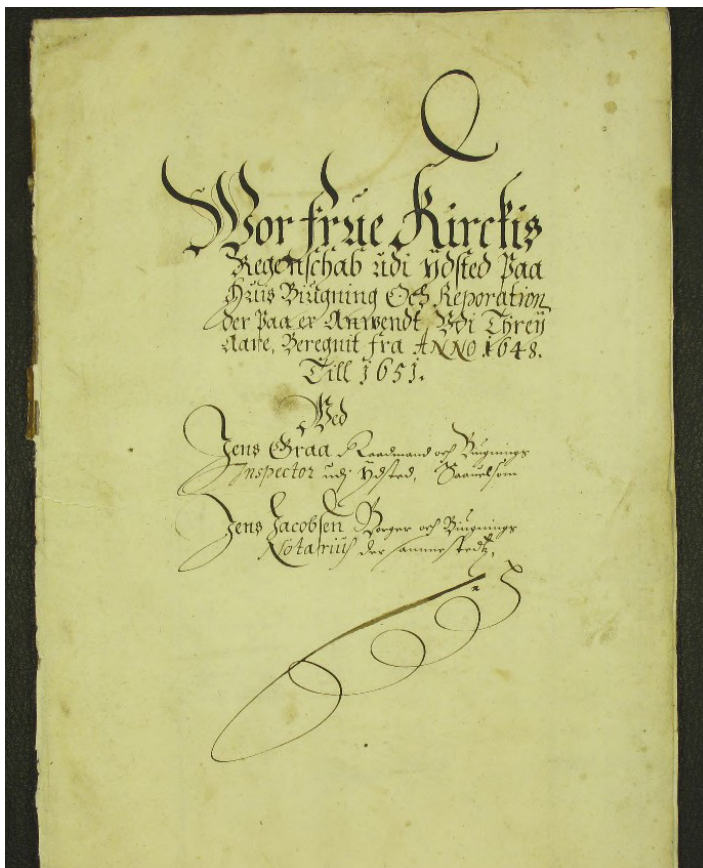 Wor frue Kirckis
Regenschab udi Ydsted Paa
Huis Biugning Och Reporation
der Paa er Anvendt, Vdi Threy
Aare, Beregnit fra ANNO 1648.
Till 1651.
Ved
Jens Graa Raadmand och Biugnings
Inspector udj Ydsted, Saauelsom
Jens Jacobsen Borger och Biugnings
Notarius der sammestedtz.